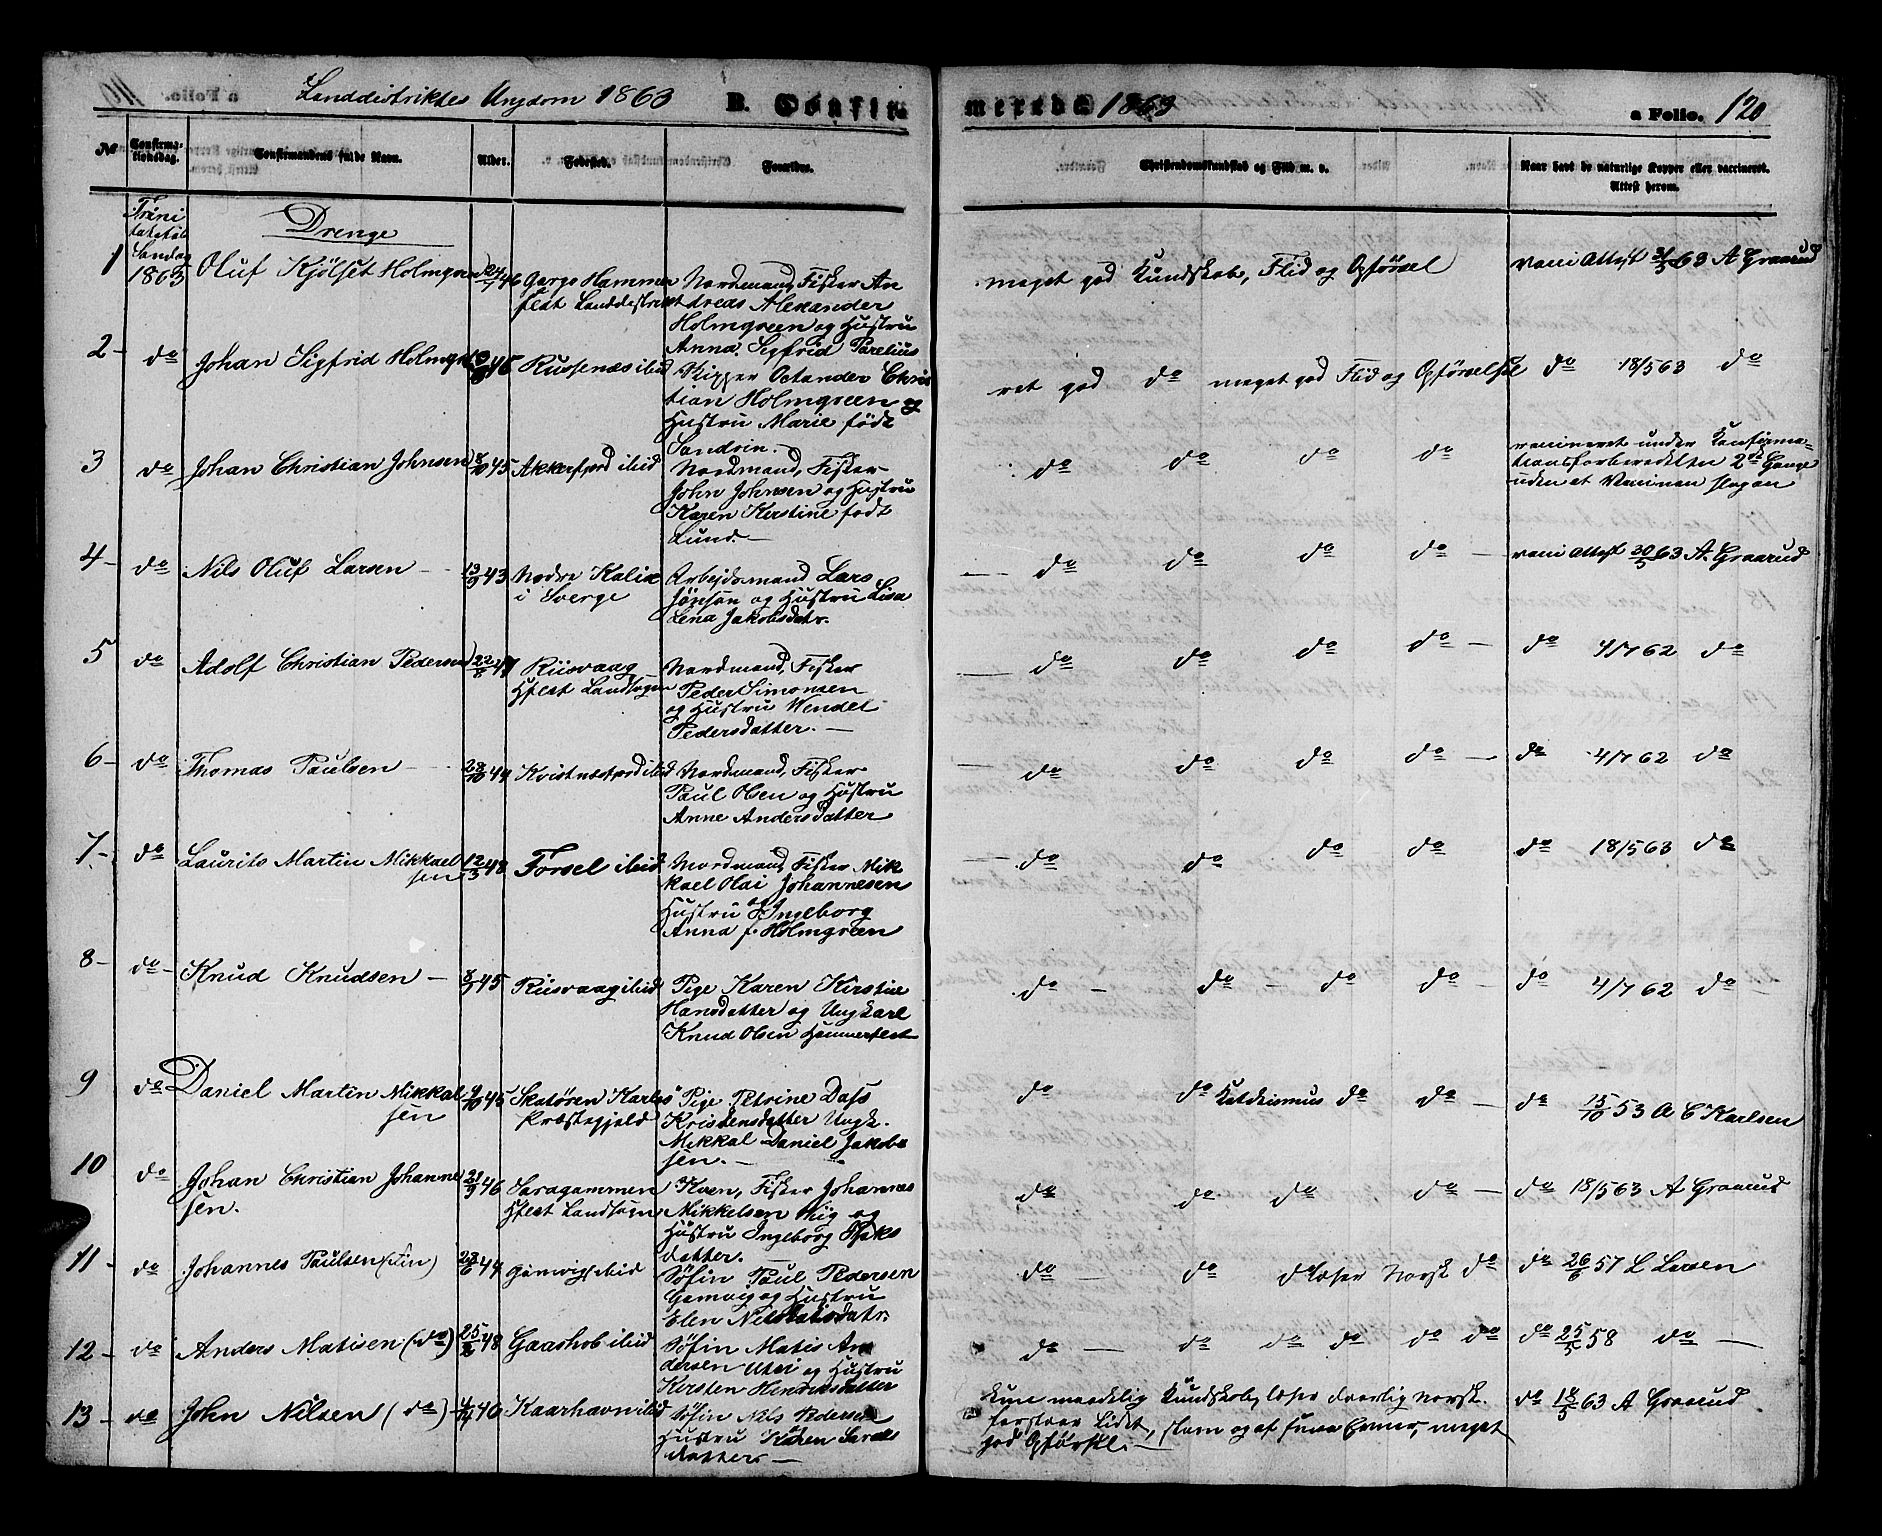 Landdistriktes Ungdom 1863
B. Confir
merede 1863
a Folio. 120
№
Confirma-
tionsdag.
Confirmandens fulde Navn.
Alder.
Fødested.
Forældre.
Christendomskundskab og Flid m. v.
Naar havt de naturlige Kopper eller vaccineret.
Attest herom.
Drenge
1
Trini
tatetis
Søndag
1863
Oluf Kjölset Holmgreen
46
Gargo Hammer
fest Landdistrikt
Nordmand, Fisker An
dreas Alexander
Holmgreen og Hustru
Anna Sigfrid Parelius
meget god Kundskab, Flid og Opførsel
Vacci Attest 31/5 63 A Graarud
2 -
do
Johan Sigfrid Holmgr
45
Russenæs ibid
Skipper Octander Chris
tian Holmgreen og
Hustru Marie født
Sandvin.
ret god do meget god Flid og Opførelse
do 18/5 63 do
3
do
Johan Christian Johnsen
8/10 45
Akkerfjord ibid
Nordmand, Fisker
John Johnsen og Hustru
Karen Kerstine født
Lund -
do do do do
vaccineret under Konfirma-
tionsforberedelsen 2de Gange
uden at Vaccinen slog an
4 -
do
Nils Oluf Larsen
13/9 43
Nedre Kalix
i Sverge
Arbejdsmand Lars
Jönson og Hustru Lisa
Lena Jakobsdatr.
do do do do -
vacci Attest 30/5 63 A. Graarud
5
do
Adolf Christian Pedersen
22/8 47
Riisvaag
Hfest Landsogn
Nordmand, Fisker
Peder Simonsen
og Hustru Wendel
Pedersdatter. -
do do do do -
do 4/7 62 do
6 -
do
Thomas Paulsen
28/10 47
Kvistnæsfjord ibid
Nordmand, Fisker
Paul Olsen og Hustru
Anne Andersdatter
do do do do -
do 4/7 62 do
7 -
do
Laurits Martin Mikkael
sen
12/3 48
Forsøl ibid
Nordmand, Fisker Mik
kael Olai Johannesen
og
Hustru Ingeborg
Anna f. Holmgreen
do do do do
do 18/5 63 do
8 -
do -
Knud Knudsen -
8/7 45
Riisvaag ibid
Pige Karen Kirstine
Hansdatter og Ungkarl
Knud Olsen Hammerfest
do - do - do do -
do 4/7 62 do -
9
do
Daniel Martin Mikkal
sen
9/10 45
Skatören Karlsö
Præstegjeld
Pige Petrine Dass
Kristensdatter Ungk.
Mikkal Daniel Jakob
sen. -
do do Katekismus do do -
do 15/10 53 A C Karlsen
10
do
Johan Christian Johanne
sen.
21/9 46
Saragammen
Hfest Landsogn
Kven, Fisker Johannes
Mikkelsen og
Hustru Ingeborg
datter.
do do do do -
do 18/5 63 A Graarud
11 -
do
Johannes Paulsen (Fin)
23/6 47
ibid
Søfin Paul Pedersen
og Hustru
Elen datr.
do - do do læser Norsk do
do 26/6 57 L Larsen
12 -
do
Anders Matisen (do)
48
Gaashob ibid
Søfin Matis An
dersen og Hustru
Kersten Henriksdatter
do - do do do do do
do 25/5 58 do -
13 -
do
John Nilsen (do)
40
Kaarhavn ibid
Søfin Nils Pedersen
Hustru Karen Sarals
datter -
Kun maadelig Kundskab, læser daarlig norsk.
forstaar Lidet, sløv og af smaa Evner, meget
god Opførsel. -
do 18/5 63 A Graarud